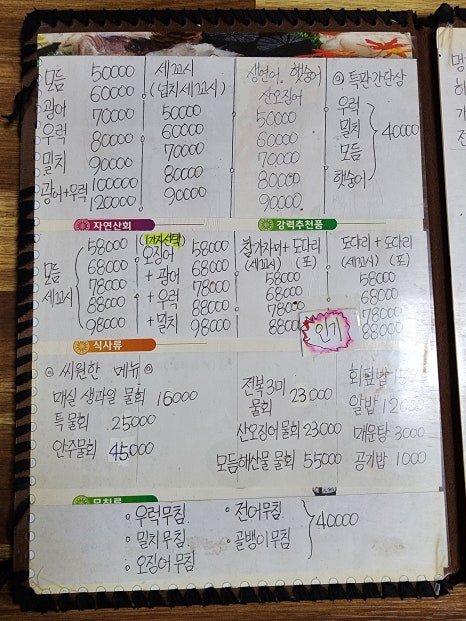 모듬
광어
우럭
밀치
광어+우럭
50000
60000
70000
80000
90000
100000
120000
세꼬시
(넙치세꼬시)
50000
60000
70000
80000
90000
생연어, 햇숭어
산오징어
50000
60000
70000
80000
90000
특만간단상
우럭
밀치
모듬
햇숭어
40000
자연산회
강력추천품
모듬
세꼬시
58000
68000
78000
88000
98000
(1가지선택)
오징어
+ 광어
+ 우럭
+ 밀치
58000
68000
78000
88000
98000
참가자미+도다리
(세꼬시) (포)
58000
68000
78000
88000
도다리+도다리
(세꼬시) (포)
58000
68000
78000
88000
인기
식사류
씨원한 메뉴
매실 생과일 물회 16000
특물회 25000
안주물회 45000
전복3미
물회 23000
산오징어물회 23000
모듬해산물 물회 55000
회덮밥
알밥
매운탕 3000
공기밥 1000
무침류
우럭무침.
밀치무침.
오징어무침
전어무침.
골뱅이무침
40000